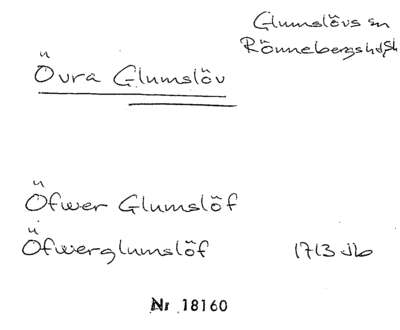 Glumslövs sn
Rönnebergs hd, Sk
Övra Glumslöv
Öfwer Glumslöf
Öfwerglumslöf 1713 Jb
Nr 18160